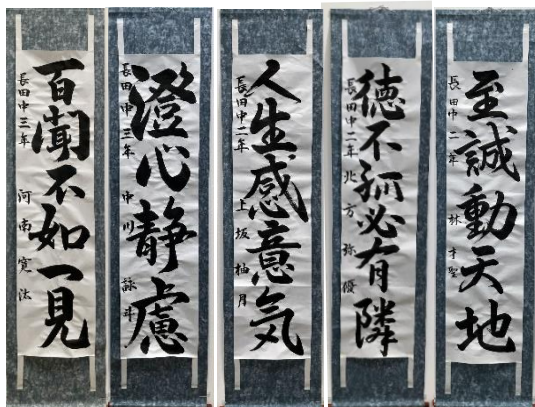 百聞不如一見
長田中三年 河南
澄心静慮
長田中三年 中川 詠斗
人生感意気
長田中二年 上坂 柚月
徳不孤必有隣
長田中二年 北方 弥優
至誠動天地
長田中二年 林